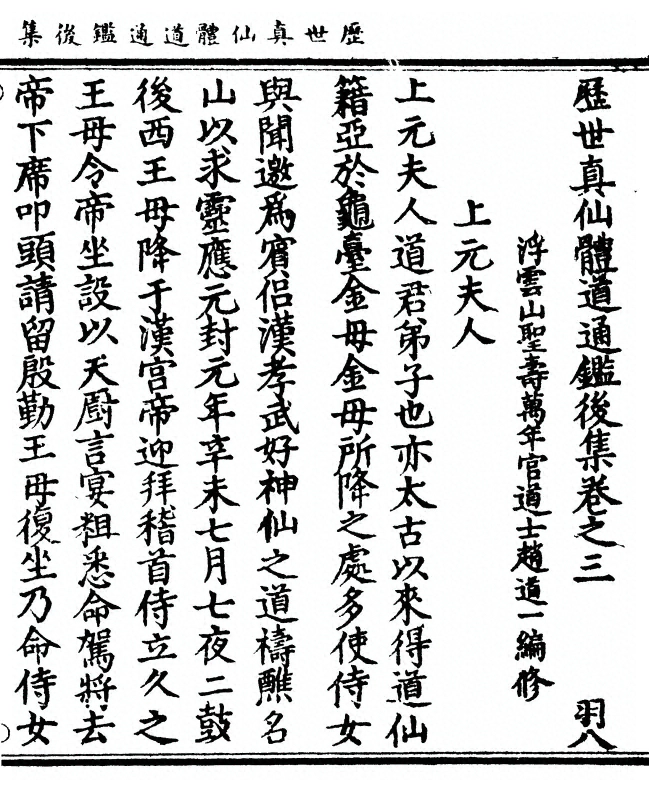 歷世真仙體道通鑑後集
歷世真仙體道通鑑後集卷之三 羽八
浮雲山聖壽萬年宮道士趙道一編修
上元夫人
上元夫人道君弟子也亦太古以來得道仙
籍亞於龜臺金母金母所降之處多使侍女
與聞邀為賓侶漢孝武好神仙之道禱醮名
山以求靈應元封元年辛未七月七夜二鼓
後西王母降于漢宮帝迎拜稽首侍立久之
王母令帝坐設以天廚言宴粗悉命駕將去
帝下席叩頭請留殷勤王母復坐乃命侍女